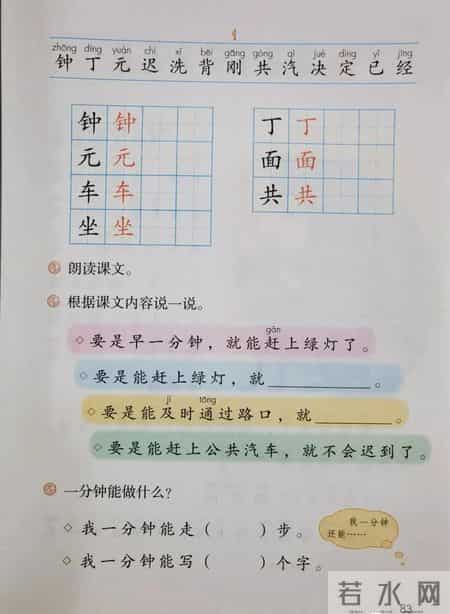 zhōng dīng yuán chí xǐ bèi gāng gòng qì jué dìng yǐ jīng
钟 丁 元 迟 洗 背 刚 共 汽 决 定 已 经
钟 钟
元 元
车 车
坐 坐
丁 丁
面 面
共 共
朗读课文。
根据课文内容说一说。
gǎn
◇要是早一分钟，就能赶上绿灯了。
◇要是能赶上绿灯，就__________。
jí tōng
◇要是能及时通过路口，就________。
◇要是能赶上公共汽车，就不会迟到了。
一分钟能做什么？
◇我一分钟能走（ ）步。
◇我一分钟能写（ ）个字。
我一分钟
还能……
若水网
83